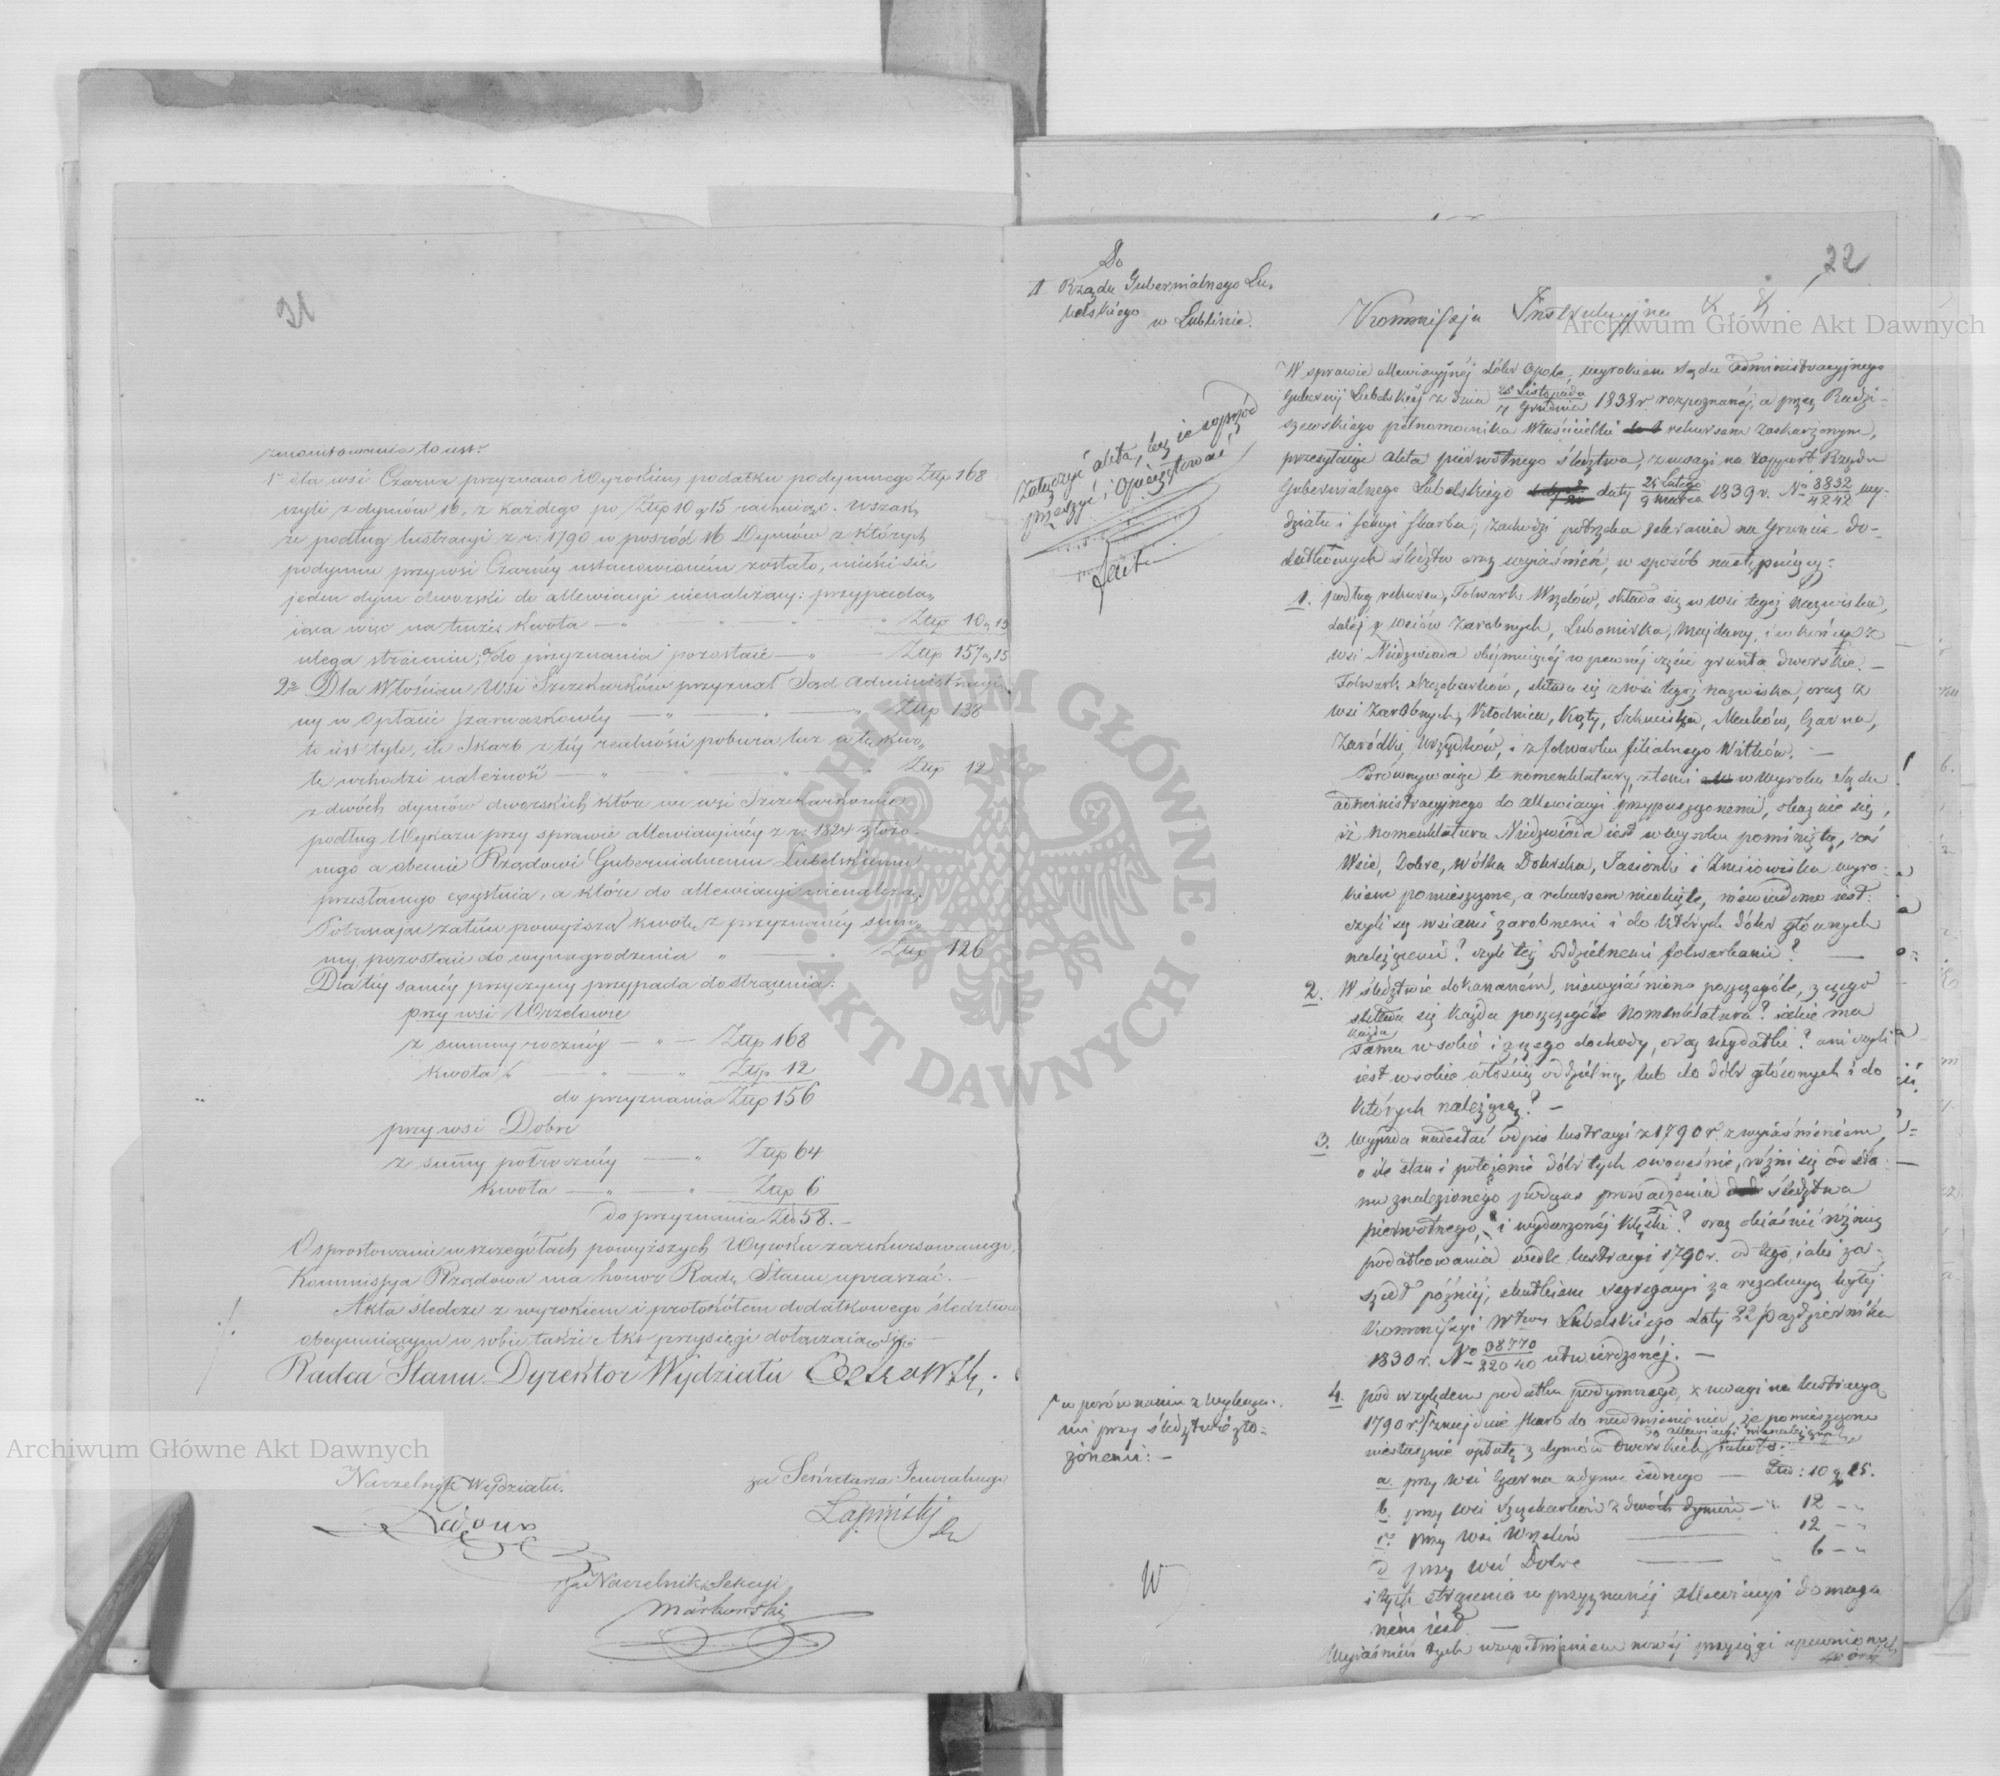 21
zmonitowania to iest:
1o dla wsi Czarna przyznano Wyrokiem podatku podymnego Złtp 168
czyli z dymów 16, z każdego po Złtp 10 g 15 rachuiąc. Wszak,
że podług lustracyi z r: 1790 w pośród 16 Dymów z których
podymne przy wsi Czarnéy ustanowioném zostało, mieści się
jeden dym dworski do allewiacyi nienależący; przypada,
iąca więc na tenże kwota Złtp 10 g 15
ulega strąceniu, a do przyznania pozostaie Złtp 157 g 15
2o Dla Włościan Wsi Szczekarków przyznał Sąd Administracyi,
ny w opłacie szarwarkowéy Złtp 138
to iest tyle, ile Skarb z téy realności pobiera lecz w tę kwo,
tę wchodzi należność Złtp 12
z dwóch dymów dworskich które we wsi Szczekarkowie
podług Wykazu przy sprawie allewiacyinéy z r: 1824 złożo-
nego a obecnie Rządowi Gubernialnemu Lubelskiemu
przesłanego egzystuią, a które do allewiacyi nienależą.
Potrącaiąc zatém powyższą kwotę z przyznanéy sum,
my pozostaie do wynagrodzenia Złtp 126
Dla téy saméy przyczyny przypada do strącenia:
przy wsi Wrzelowie
z summy rocznéy Złtp 168
kwota Złtp 12
do przyznania Złtp 156
przy wsi Dobre
z summy półrocznéy Złtp 64
kwota Złtp 6
do przyznania Złp 58.
O sprostowanie w szczegółach powyższych Wyroku zarekursowanego,
Kommissya Rządowa ma honor Radę Stanu upraszać.
Akta śledcze z wyrokiem i protokółem dodatkowego śledztwa
obeymuiącym w sobie także Akt przysięgi dołączaią się
Radca Stanu Dyrektor Wydziału
Naczelnik Wydziału.
za Sekretarza Jeneralnego
Łapiński
Za Naczelnika Sekcyi
Markowski
22
Do
Rządu Gubernialnego Lu-
belskiego
w Lublinie.
Załączyć akta, lecz ie wprzód
przeszyć i opieczętować
Kommissya Instrukcyjna
W sprawie allewiacyjnéj dóbr Opole, wyrokiem Sądu Administracyjnego
Gubernij Lubelskiéj z dnia 25 Listopada / 7 Grudnia 1838 r. rozpoznanéj, a przez Radzi-
szewskiego pełnomocnika Właścicielki rekursem zaskarżonym,
przesyłaiąc akta pierwotnego śledztwa, z uwagi na rapport Rządu
Gubernialnego Lubelskiego daty 25 Lutego / 9 Marca 1839 r. No 3832/4242 wy-
działu i sekcyi skarbu, zachodzi potrzeba zebrania na gruncie do-
datkowych śledztw oraz wyiaśnień, w sposób następuiący:
1. podług rekursu, Folwark Wrzelów, składa się z wsi tegoż nazwiska,
daléj z wsiów zarobnych, Lubomirka, Majdany, i w końcu z
wsi Niedźwiada obejmuiącéj w pewnéj części grunta dworskie.
Folwark Szczekarków, składa się z wsi tegoż nazwiska, oraz z
wsi zarobnych, Kłodnica, Kąty, Szkuciska, Mienków, Czarna,
Zaródki, Wrzątków, i z folwarku filialnego Witków.
Porównywaiąc te nomenklatury, z temi w wyroku Sądu
administracyjnego do allewiacyi przypuszczonemi, okazuie się,
iż nomenklatura Niedźwiada iest w wyroku pominiętą, zaś
Wsie, Dobre, Wólka Dobrska, Jasionki i Żmiiowiska wyro-
kiem pomieszczone, a rekursem nieobięte, niewiadomo iest:
czyli są wsiami zarobnemi i do których dóbr głównych
należącemi? czyli też oddzielnemi folwarkami?
2. W śledztwie dokonaném, niewyiaśniono poszczególe, z czego
składa się każda poszczególe nomenklatura? iakie ma
każda
sama w sobie i z czego dochody, oraz wydatki? ani czyli
iest w sobie włością oddzielną, lub do dóbr głównych i do
których należącą?
3. wypada nadesłać odpis lustracyi z 1790 r. z wyiaśnieniem,
o ile stan i położenie dóbr tych owocześnie, różni się od sta-
nu znalezionego podczas prowadzenia śledztwa
pierwotnego, i wydarzonéj klęski? oraz obiaśnić różnicę
podatkowania wedle lustracyi 1790 r. od tego, iaki za-
szedł późniéj, skutkiem segregacyi za rezolucyą byłéj
Kommissyi Wtwa Lubelskiego daty 22 Października
1830 r. No 38770/22040 utwierdzonéj.
4. pod względem podatku podymnego, z uwagi na lustracyą
1790 r. znajduie Skarb do nadmienienia, że pomieszczono
do allewiacyi nienależące
niesłusznie opłatę z dymów dworskich
a przy wsi Czarna z dymu iednego Złp: 10 g 15.
b. przy wsi Szczekarków z dwóch dymów 12
c. przy wsi Wrzelów 12
d przy wsi Dobre 6
i tych strącenia w przyznanéj allewiacyi domaga-
ném iest.
Wyiaśnień tych uzupełnieniem nowéj przysięgi upewnionych
w porównaniu z wykaza-
mi przy śledztwie zło-
żonemi:
W
Archiwum Główne Akt Dawnych
Archiwum Główne Akt Dawnych
ARCHIWUM GŁÓWNE · AKT DAWNYCH ·